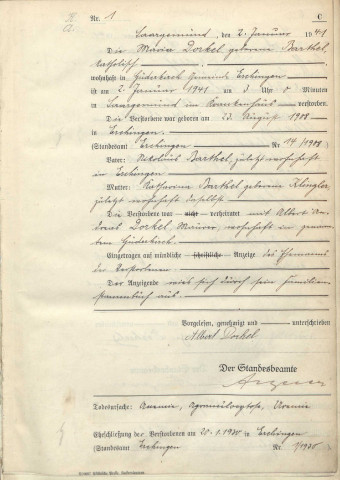 Nr. 1
C
Saargemünd, den 2. Januar 1941
Die Maria Dorkel geborene Barthel,
katholisch
wohnhaft in Güderkirch Gemeinde Erchingen
ist am 2. Januar 1941 um 3 Uhr 0 Minuten
in Saargemünd im Krankenhaus verstorben.
Die Verstorbene war geboren am 23. August 1908
in Erchingen
(Standesamt Erchingen Nr. 14/1908)
Vater: Nikolaus Barthel, zuletzt wohnhaft
in Erchingen
Mutter: Katharina Barthel geborene Klingler,
zuletzt wohnhaft daselbst
Die Verstorbene war nicht verheiratet mit Albert
Dorkel, Maurer, wohnhaft in
Güderkirch
Eingetragen auf mündliche schriftliche Anzeige des Ehemanns
der Verstorbenen
Der Anzeigende wies sich durch sein Familien-
stammbuch aus.
Vorgelesen, genehmigt und unterschrieben
Albert Dorkel
Der Standesbeamte
Todesursache: Anemie, Agranulozytose, Uremie
Eheschließung der Verstorbenen am 20.1.1930 in Erchingen
(Standesamt Erchingen Nr. 1/1930)